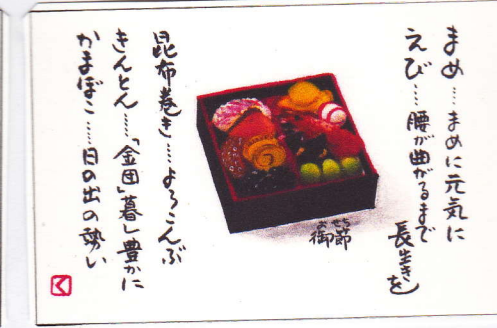 まめ…まめに元気に
えび…腰が曲がるまで
長生きを
御節
おせち
昆布巻き…よろこんぶ
きんとん…「金団」暮し豊かに
かまぼこ……日の出の勢い
く